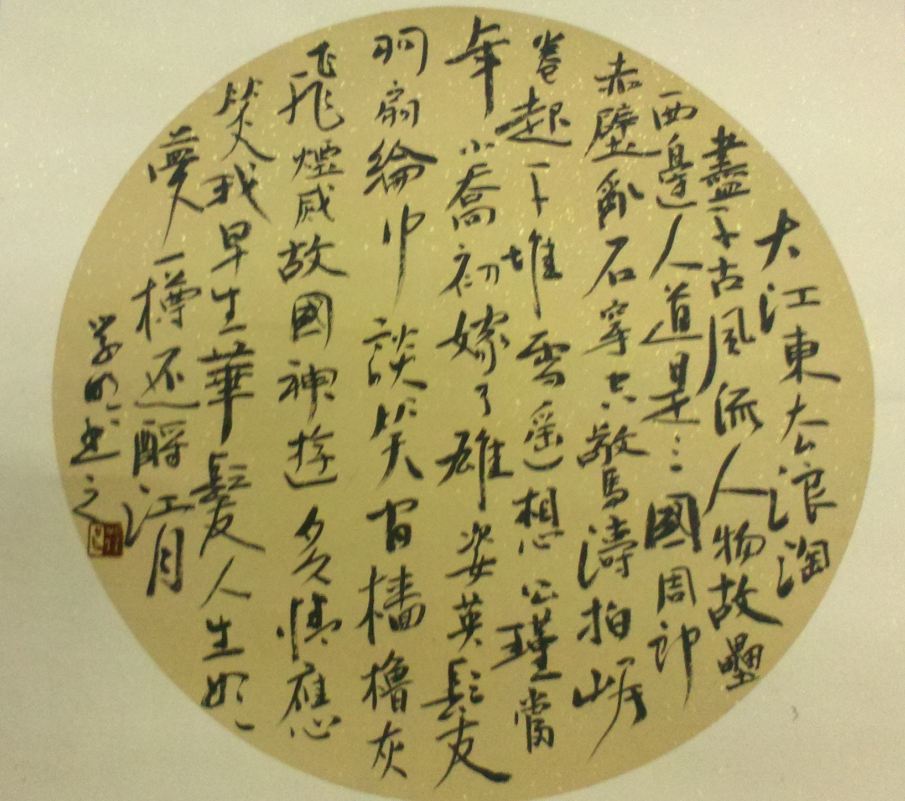 大江東去浪淘
盡千古風流人物故壘
西邊人道是三國周郎
赤壁亂石穿空驚濤拍岸
卷起千堆雪遙想公瑾當
年小喬初嫁了雄姿英髮
羽扇綸巾談笑間檣櫓灰
飛煙滅故國神遊多情應
笑我早生華髮人生如
夢一樽還酹江月
学明书之